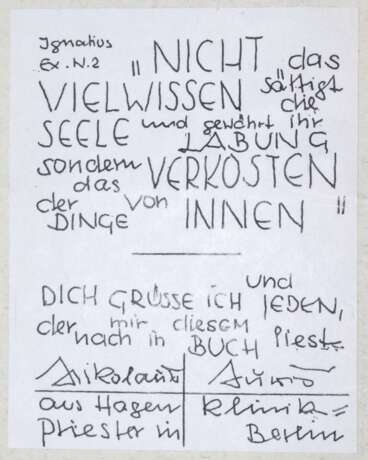 Ignatius
Ex. N. 2 „NICHT das
VIELWISSEN sättigt die
SEELE und gewährt ihr LABUNG
sondern das VERKOSTEN
der DINGE von INNEN"
und
DICH GRÜSSE iCH JEDEN,
der nach mir in diesem BUCH liest
Nikolaus
aus Hagen Klinik=
Priester in Berlin